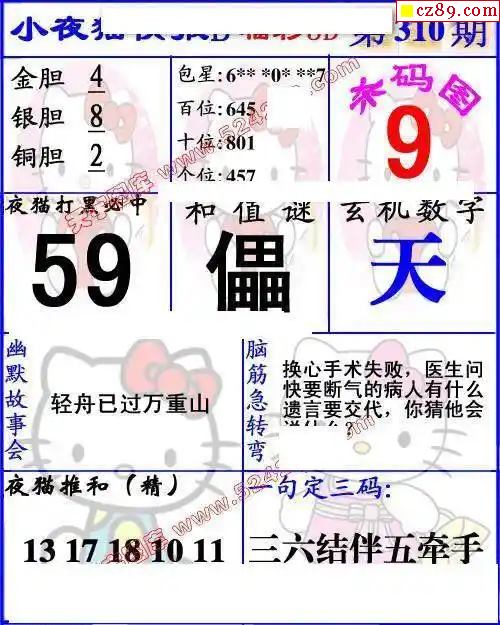 小夜猫
第310期
cz89.com
金胆 4
银胆 8
铜胆 2
包星：6** *0* **7
百位：645
十位：801
个位：457
杀码图
9
夜猫打黑必中
59
和值谜
儡
玄机数字
天
幽默故事会
轻舟已过万重山
脑筋急转弯
换心手术失败，医生问
快要断气的病人有什么
遗言要交代，你猜他会
夜猫推和（精）
13 17 18 10 11
一句定三码：
三六结伴五牵手